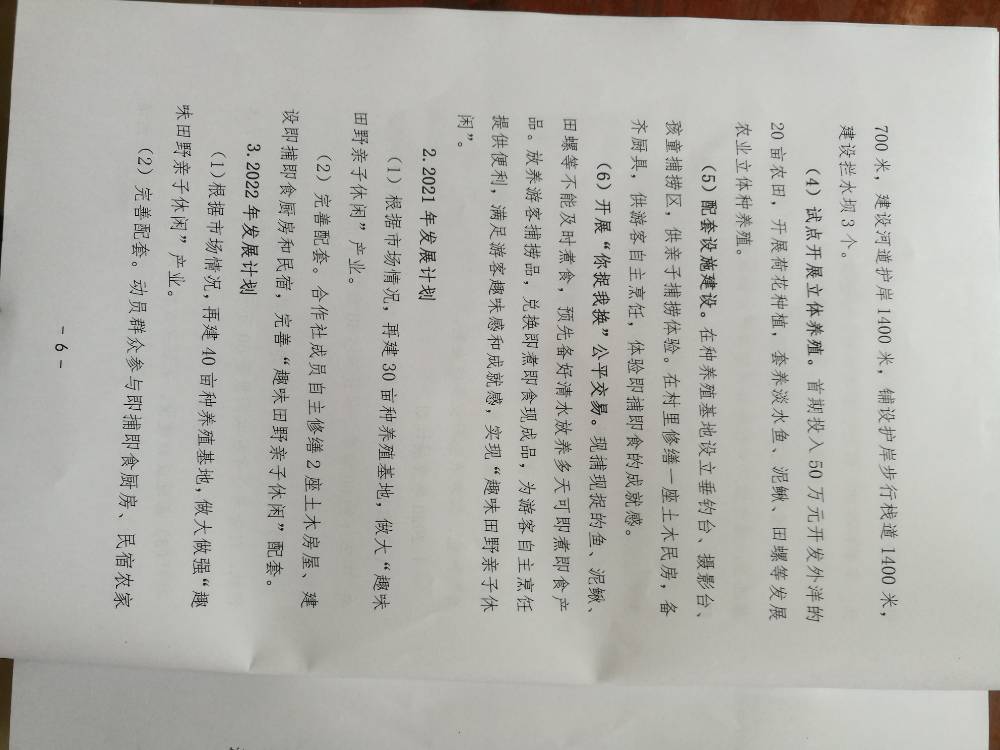 700 米，建设河道护岸 1400 米，铺设护岸步行栈道 1400 米，
建设拦水坝 3 个。
（4）试点开展立体养殖。首期投入 50 万元开发外洋的
20 亩农田，开展荷花种植，套养淡水鱼、泥鳅、田螺等发展
农业立体种养殖。
（5）配套设施建设。在种养殖基地设立垂钓台、摄影台、
孩童捕捞区，供亲子捕捞体验。在村里修缮一座土木民房，备
齐厨具，供游客自主烹饪，体验即捕即食的成就感。
（6）开展“你捉我换”公平交易。现捕现捉的鱼、泥鳅、
田螺等不能及时煮食，预先备好清水放养多天可即煮即食产
品。放养游客捕捞品，兑换即煮即食现成品，为游客自主烹饪
提供便利，满足游客趣味感和成就感，实现“趣味田野亲子休
闲”。
2. 2021 年发展计划
（1）根据市场情况，再建 30 亩种养殖基地，做大“趣味
田野亲子休闲”产业。
（2）完善配套。合作社成员自主修缮 2 座土木房屋、建
设即捕即食厨房和民宿，完善“趣味田野亲子休闲”配套。
3. 2022 年发展计划
（1）根据市场情况，再建 40 亩种养殖基地，做大做强“趣
味田野亲子休闲”产业。
（2）完善配套。动员群众参与即捕即食厨房、民宿农家
- 6 -